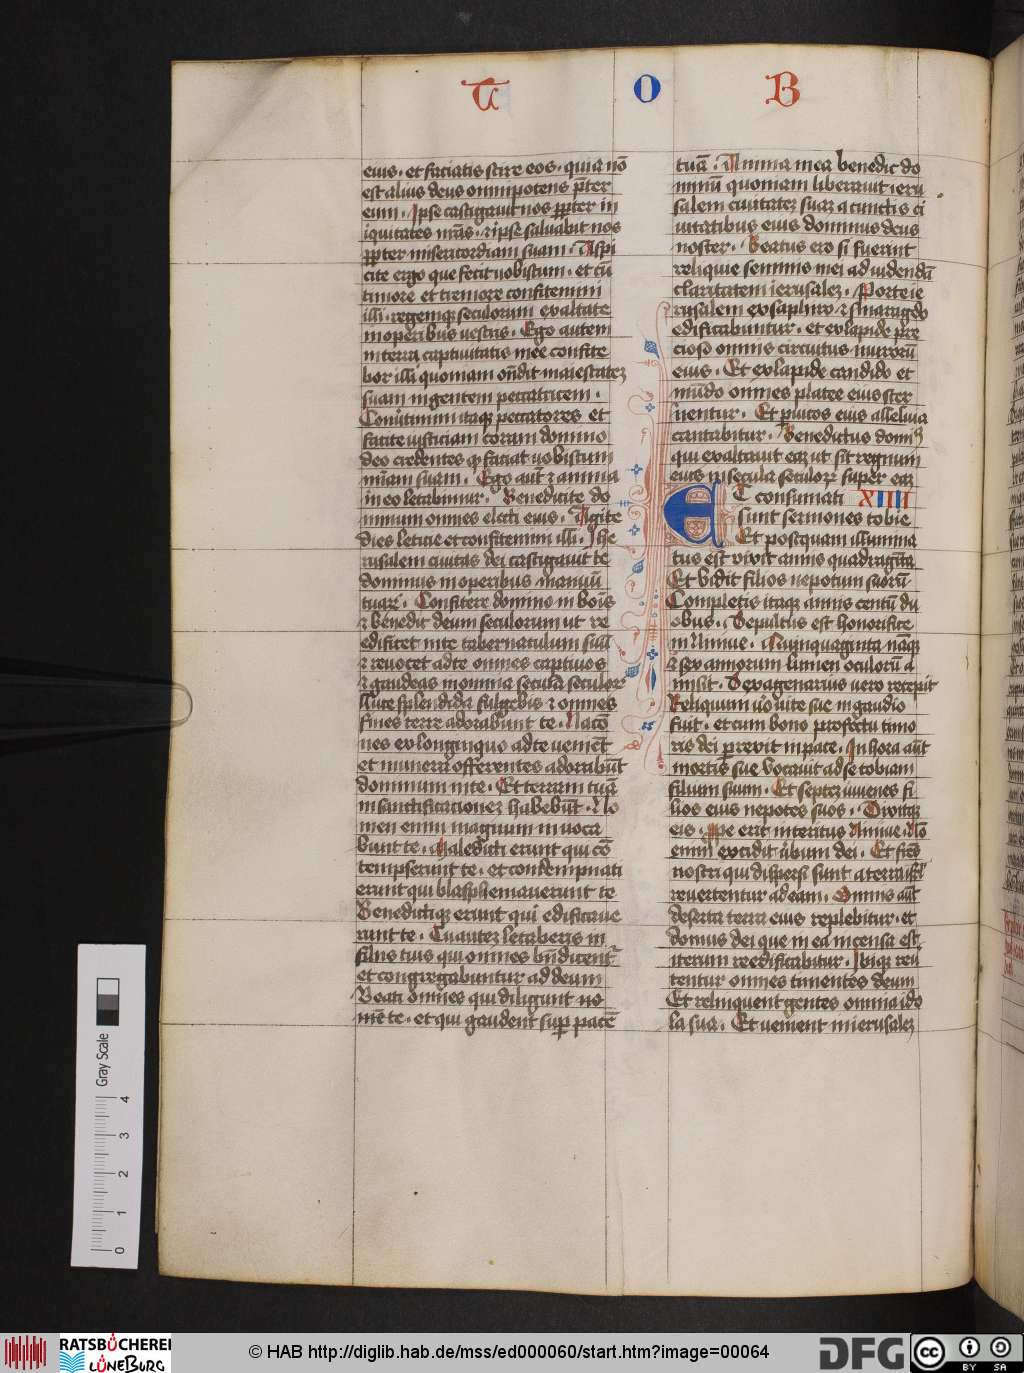 T O B
eius · et faciatis scire eos · quia nō
est alius deus omnipotens p̄ter
eum · Ipse castigauit nos ꝓpter in
iquitates nr̄as · ⁊ ipse saluabit nos
ꝓpter misericordiam suam · Aspi
cite ergo que fecit uobiscum · et cū
timore et tremore confitemini
illi · regemqꝫ seculorum exaltate
in operibus uestris · Ego autem
in terra captiuitatis mee confite
bor illi quoniam oñdit maiestateꝫ
suam in gentem peccatricem ·
Conůtimini itaqꝫ peccatores et
facite iusticiam coram domino
deo credentes ꝙ faciat uobiscum
mīam suam · Ego aut̄ ⁊ anima
in eo letabimur · Benedicite do
minum omnes elc̄ti eius · Agite
dies leticie et confitemini illi · Ihe
rusalem ciuitas dei castigauit te
dominus in operibus manuū
tuaꝝ · Confitere domino in bōis
⁊ benedic deum seculorum ut re
edificet in te tabernaculum suū
⁊ reuocet ad te omnes captiuos
⁊ gaudeas in omnia secula seculoꝝ
Luce splendida fulgebis ⁊ omnes
fines terre adorabunt te · Nacō
nes ex longinquo ad te uenient
et munera offerentes adorabūt
dominum in te · Et terram tuā
in sanctificacionem habebūt · No
men enim magnum inuoca
bunt te · Maledicti erunt qui cō
tempserunt te · et condempnati
erunt qui blasphemauerunt te
Benedictiqꝫ erunt qui edificaue
runt te · Tu auteꝫ letaberis in
filiis tuis qui omnes bn̄dicentꝰ
et congregabuntur ad deum
Beati omnes qui diligunt no
mē te · et qui gaudent suꝑ pacē
tuā · Anima mea benedic do
minū quoniam liberauit ieru
salem ciuitateꝫ suaꝫ a cunctis ci
uitatibus eius dominus deus
noster · Beatus ero si fuerint
reliquie seminis mei ad uidendā
claritatem ierusaleꝫ · Porte ie
rusalem ex saphiro · ⁊ smaragdo
edificabuntur · et ex lapide p̄re
cioso omnis circuitus muroꝝ
eius · Et ex lapide candido et
mūdo omnes platee eius ster
nentur · Et ꝑ uicos eius alleluia
cantabitur · Benedictus domīꝰ
qui exaltauit eaꝫ ut sit regnum
eius in secula seculoꝝ super eaꝫ
ET consumati XIIII
sunt sermones tobie
Et postquam illumina
tus est vixit annis quadragīta
Et vidit filios nepotum suoꝝ
Completis itaqꝫ annis centū du
obus · Sepultus est honorifice
in Niniue · Quinquaginta nāqꝫ
⁊ sex annorum lumen oculoꝝ a
misit · Sexagenarius uero recepit
Reliquum ůo uite sue in gaudio
fuit · et cum bono profectu timo
ris dei ꝑrexit in pace · In hora aūt
mortis sue vocauit ad se tobiam
filium suum · Et septeꝫ iuuenes fi
lios eius nepotes suos · Dixitqꝫ
eis · Pꝑe erit interitus Niniue · Nō
enim excidit ůbum dei · Et frēs
nostri qui dispersi sunt a terra isrl̄
reuertentur ad eam · Omnis aūt
deserta terra eius replebitur · et
domus dei que in ea incensa est
iterum reedificabitur · Ibiqꝫ reū
tentur omnes timentes deum
Et relinquent gentes omnia ido
la sua · Et uenient in ierusaleꝫ
Gray Scale
0 1 2 3 4
RATSBÜCHEREI
LÜNEBURG
© HAB http://diglib.hab.de/mss/ed000060/start.htm?image=00064
DFG
cc
BY SA